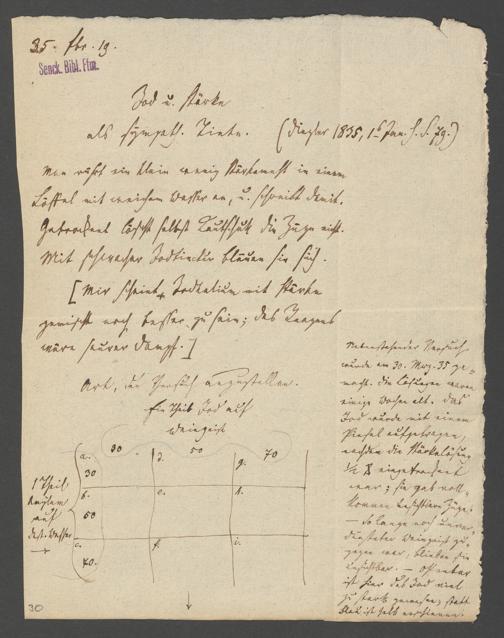 35. fbr. 19.
Senck. Bibl. Ffm.
Jod u. Stärke
als sympath. Tinte. (Dingler 1835, 1s Jan. H. S. 79.)
Man rührt ein klein wenig Stärkemehl in einem
Löffel mit weichem Wasser an, u. schreibt damit.
Getrocknet löscht selbst Cautschuk die Züge nicht.
Mit schwacher Jodtinctur bläuen sie sich.
[Mir scheint, Jodkalium mit Stärke
gemischt noch besser zu sein; das Reagens
wäre saurer Dampf.]
Art, den Versuch anzustellen.
Ein Theil Jod auf
Weingeist
30 50 70
a. d. g.
30
1 Theil
b. e. h.
auf 50
dest. Wasser
c. f. i.
70.
Nebenstehender Versuch
wurde am 30. Merz 35 ge-
macht. Die Lösungen waren
einige Wochen alt. Das
Jod wurde mit einem
Pinsel aufgetragen,
nachdem die Stärkelösung
eingetrocknet
war; sie gab voll-
kommen Züge.
— So lange noch
Weingeist zu-
gegen war, blieben sie
unsichtbar. — Offenbar
ist hier das Jod viel
zu stark gewesen; statt
30